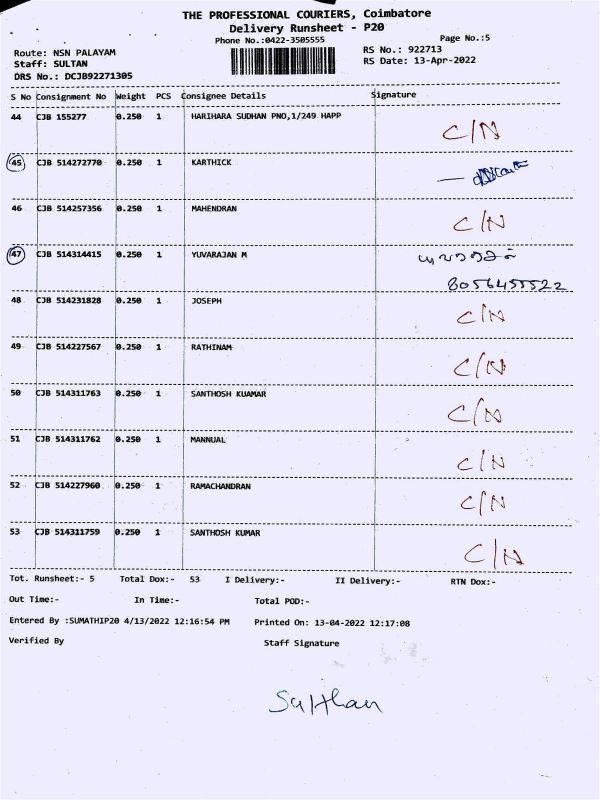 THE PROFESSIONAL COURIERS, Coimbatore
Delivery Runsheet - P20
Phone No.:0422-3505555 Page No.:5
Route: NSN PALAYAM RS No.: 922713
Staff: SULTAN RS Date: 13-Apr-2022
DRS No.: DCJB92271305
S No Consignment No Weight PCS Consignee Details Signature
44 CJB 155277 0.250 1 HARIHARA SUDHAN PNO,1/249 HAPP C/N
45 CJB 514272770 0.250 1 KARTHICK
46 CJB 514257356 0.250 1 MAHENDRAN C/N
47 CJB 514314415 0.250 1 YUVARAJAN M
8056455522
48 CJB 514231828 0.250 1 JOSEPH C/N
49 CJB 514227567 0.250 1 RATHINAM C/N
50 CJB 514311763 0.250 1 SANTHOSH KUAMAR C/N
51 CJB 514311762 0.250 1 MANNUAL C/N
52 CJB 514227960 0.250 1 RAMACHANDRAN C/N
53 CJB 514311759 0.250 1 SANTHOSH KUMAR C/N
Tot. Runsheet:- 5 Total Dox:- 53 I Delivery:- II Delivery:- RTN Dox:-
Out Time:- In Time:- Total POD:-
Entered By :SUMATHIP20 4/13/2022 12:16:54 PM Printed On: 13-04-2022 12:17:08
Verified By Staff Signature
Sulthan